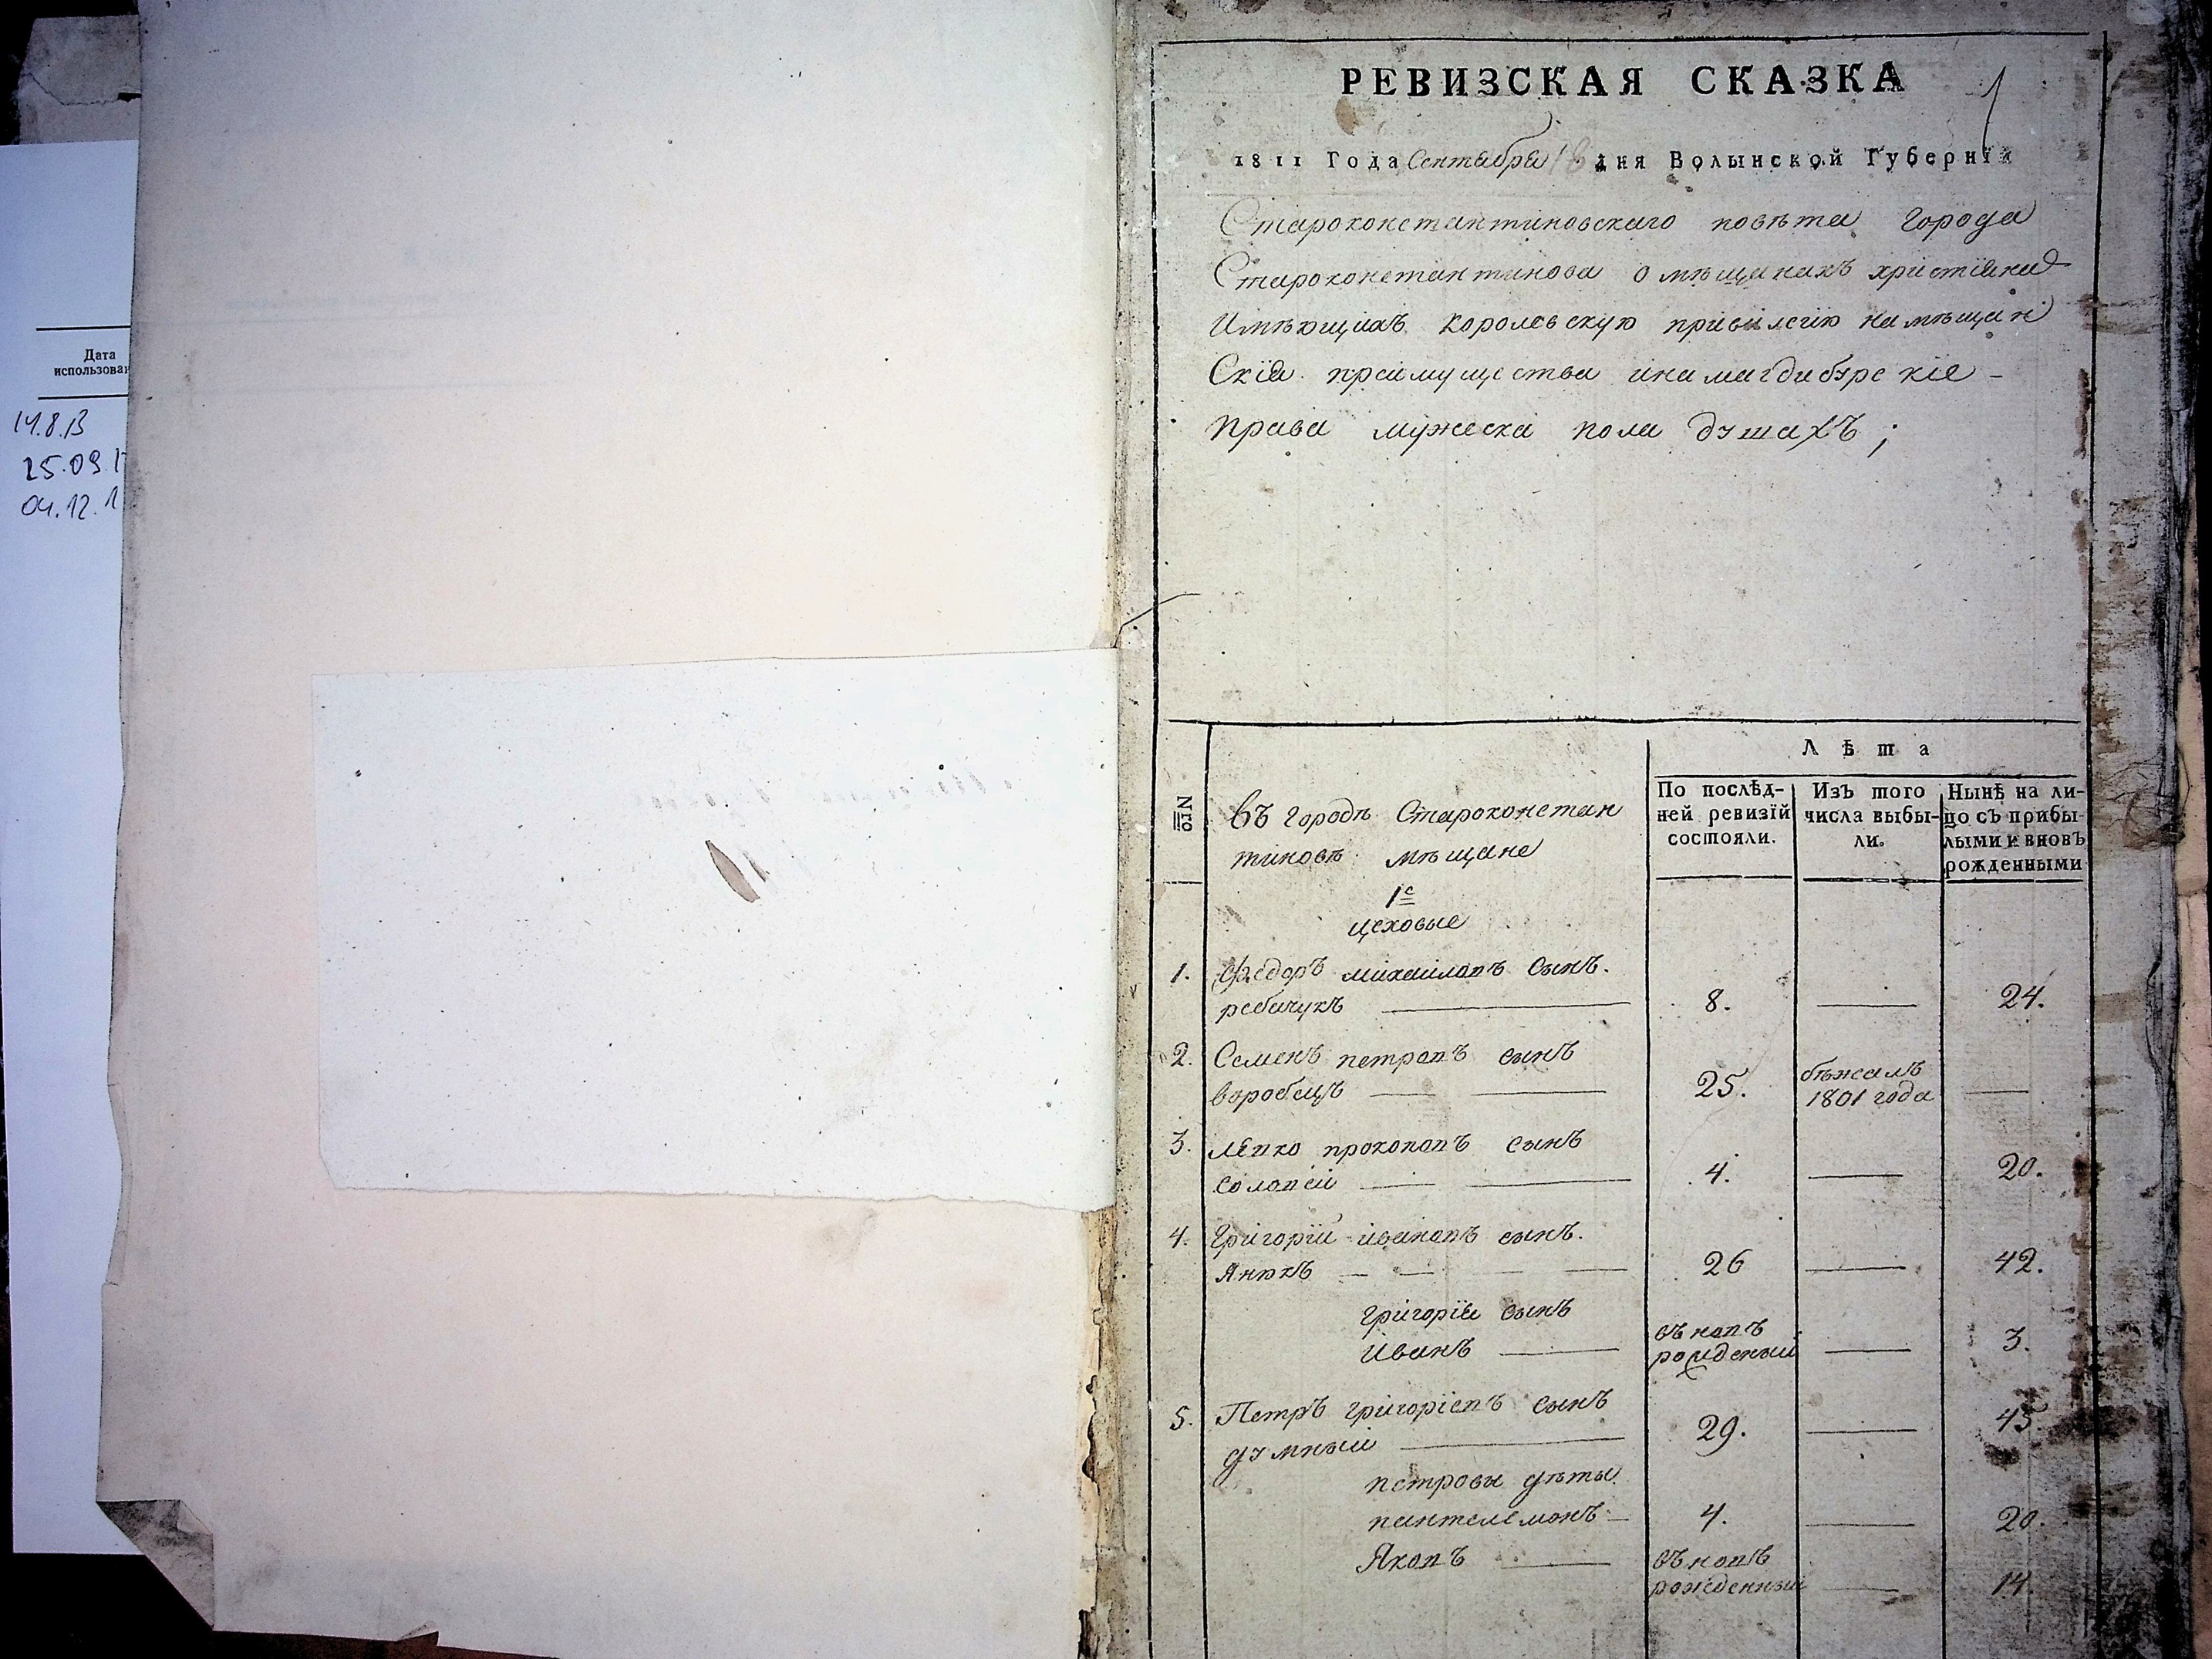 Дата
использован
14.8.13
25.09.1
04.12.1
РЕВИЗСКАЯ СКАЗКА
1
1811 Года Сентабра 18 дня Волынской Губернїи
Староконстантиновскаго повѣта города
Староконстантинова о мѣщанахъ христіяна
Имѣющихъ королевскую привилегію на мѣщан
Скія преимущества и на магдибурскіе -
права мужеска пола душахъ;
Nro
въ городѣ Староконстан
тиновѣ мѣщане
1е
цеховые
Лѣта
По послѣд-
ней ревизїй
состояли.
Изъ того
числа выбы-
ли.
Нынѣ на ли-
цо съ прибы-
лыми и вновь
рожденными
1. Федоръ михаиловъ Сынъ.
ребачукъ 8. — 24.
2. Семенъ петровъ сынъ
воробецъ — 25. бѣжалъ
1801 года —
3. левко прокоповъ сынъ
Соловей — 4. — 20.
4. Григорій ивановъ сынъ.
Янюкъ — 26 — 42.
григоріи сынъ
Иванъ — въновъ
рожденый — 3.
5. Петръ григоріевъ сынъ
думный — 29. — 45
петровы дѣты
пантелемонъ — 4. — 20.
Яковъ — въновъ
рожденный — 14.